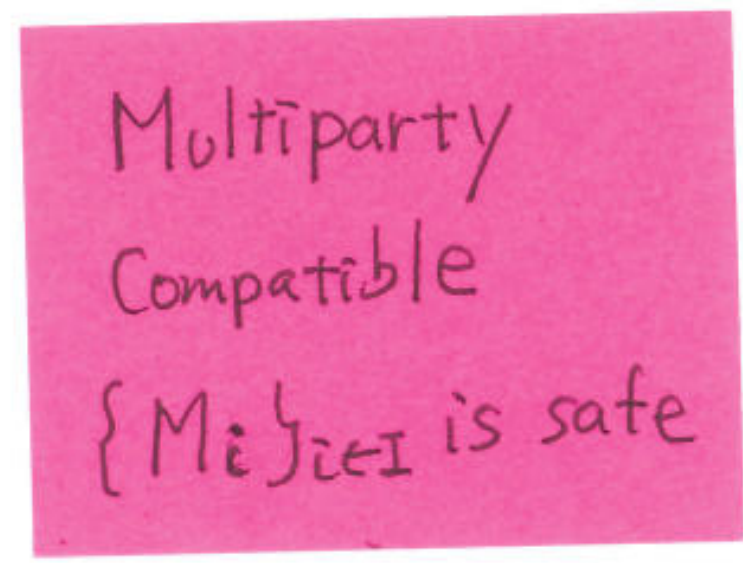 Multiparty
Compatible
{Mi}i∈I is safe